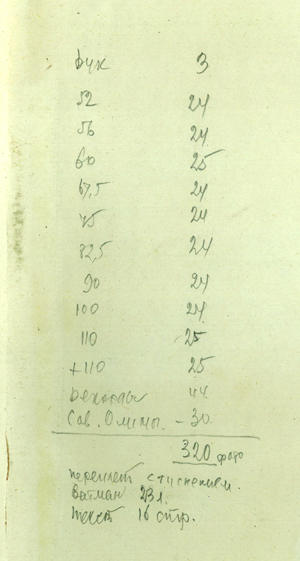 фук 3
52 24
56 24
60 25
67,5 24
75 24
82,5 24
90 24
100 24
110 25
+110 25
рекорды 44
Сов. Олимп. - 30
320 фото
переплет с тиснением.
Ватман 23 л.
текст 16 стр.